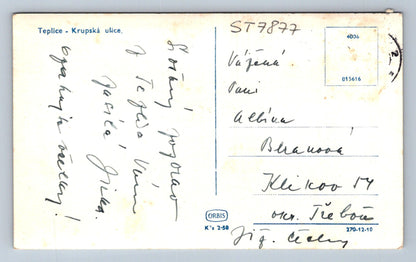 Teplice - Krupská ulice.
ST7877
4006
015616
Srdečný pozdrav
z Teplic Vám
zasílá Jirka.
všechny!
Vážená
Paní
Albína
Beranová
Klikov 54
okr. Třeboň
Již. Čechy
ORBIS
K's 2-58
270-12-10